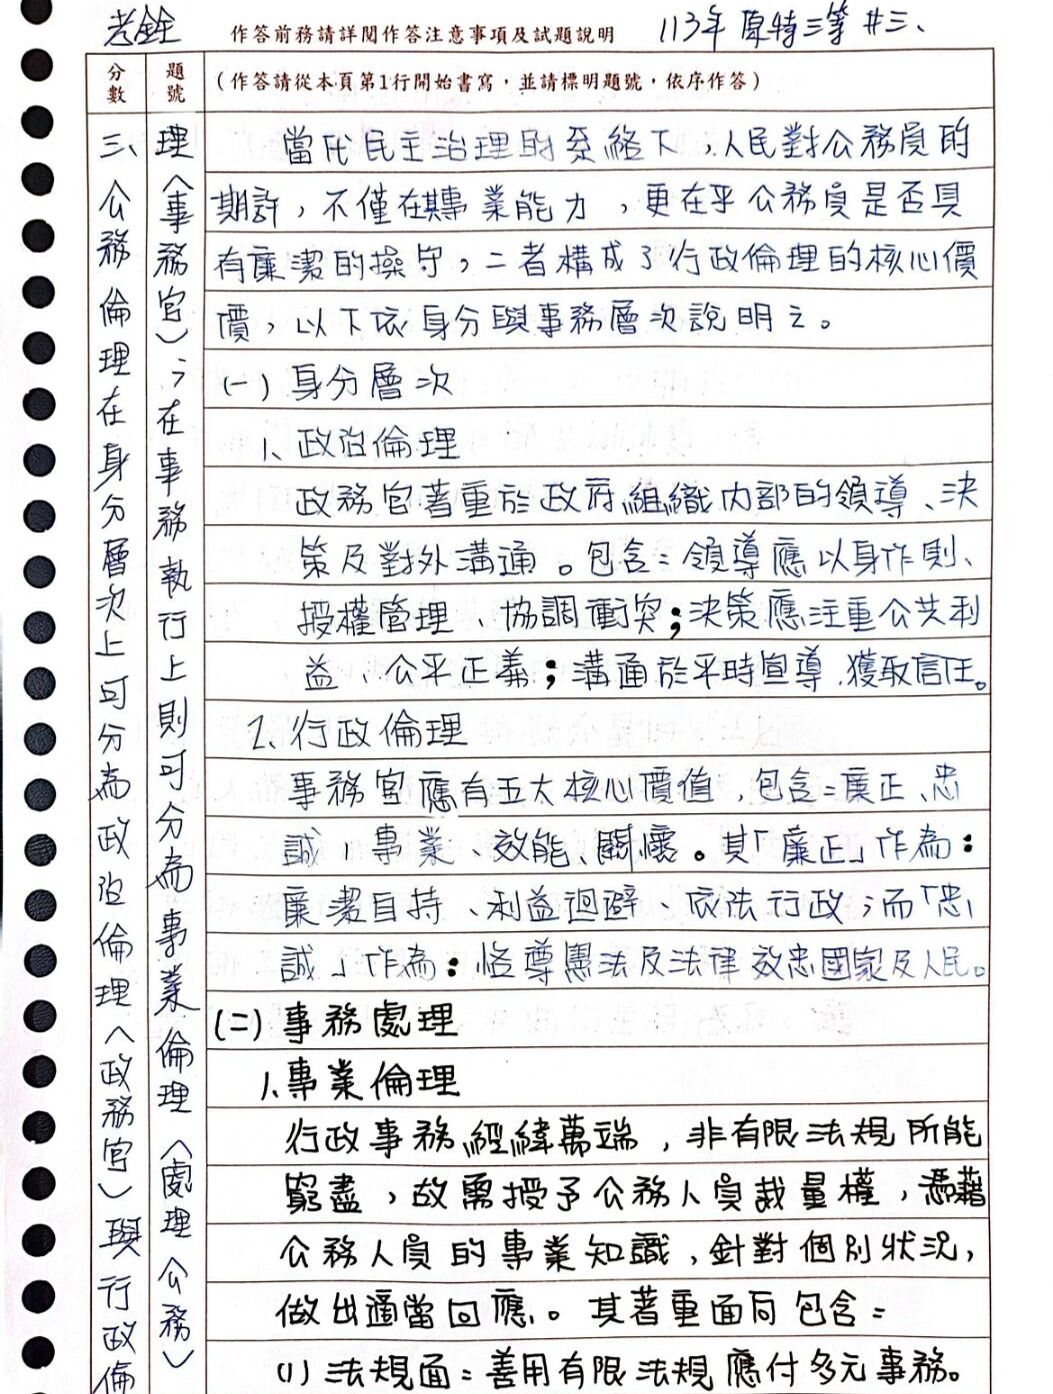 老銓
作答前務請詳閱作答注意事項及試題說明
113年原特三等 #三、
分數
題號
(作答請從本頁第1行開始書寫，並請標明題號，依序作答)
三、公務倫理在身分層次上可分為政治倫理（政務官）與行政倫
理（事務官）；在事務執行上則可分為專業倫理（處理公務）
當代民主治理的系絡下，人民對公務員的
期許，不僅在其專業能力，更在乎公務員是否具
有廉潔的操守，二者構成了行政倫理的核心價
價，以下依身分與事務層次說明之。
(一)身分層次
1、政治倫理
政務官著重於政府組織內部的領導、決
策及對外溝通。包含：領導應以身作則、
授權管理、協調衝突；決策應注重公共利
益、公平正義；溝通於平時宣導、獲取信任。
2、行政倫理
事務官應有五大核心價值，包含：廉正、忠
誠、專業、效能、關懷。其「廉正」作為：
廉潔自持、利益迴避、依法行政；而「忠
誠」作為：恪尊憲法及法律效忠國家及人民。
(二)事務處理
1、專業倫理
行政事務經緯萬端，非有限法規所能
窮盡，故需授予公務人員裁量權，憑藉
公務人員的專業知識，針對個別狀況，
做出適當回應。其著重面向包含：
(1)法規面：善用有限法規應付多元事務。